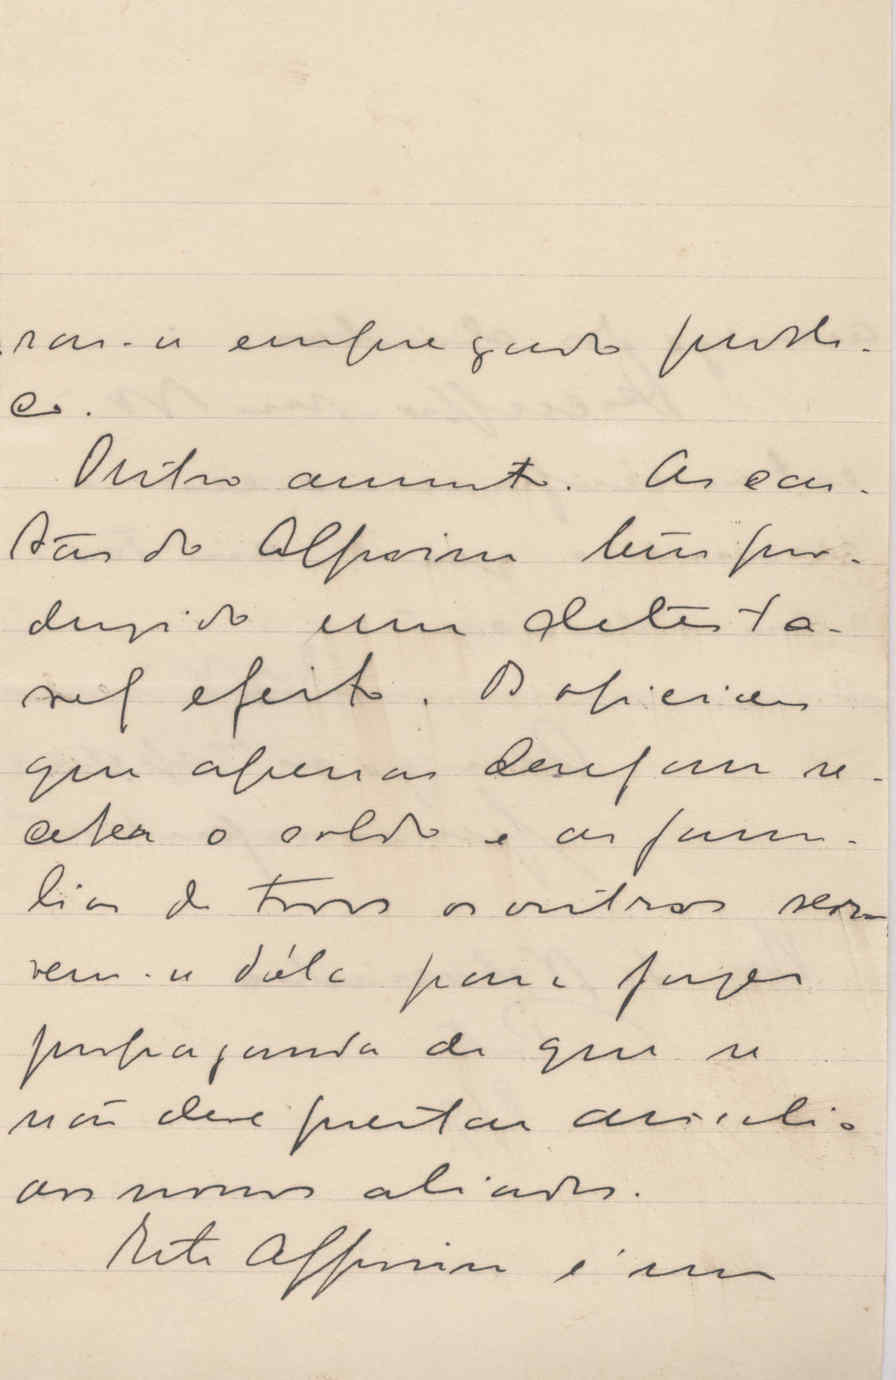 rar-se empregado publi-
co.
Outro assunto. As car-
tas do Alpoim teem pro-
duzido um detesta-
vel efeito. Os oficiaes
que apenas desejam re-
ceber o soldo e as fami-
lias de todos os outros ser-
vem-se déla para fazer
propaganda de que se
não deve prestar auxilio
aos nossos aliados.
Este Alpoim é um